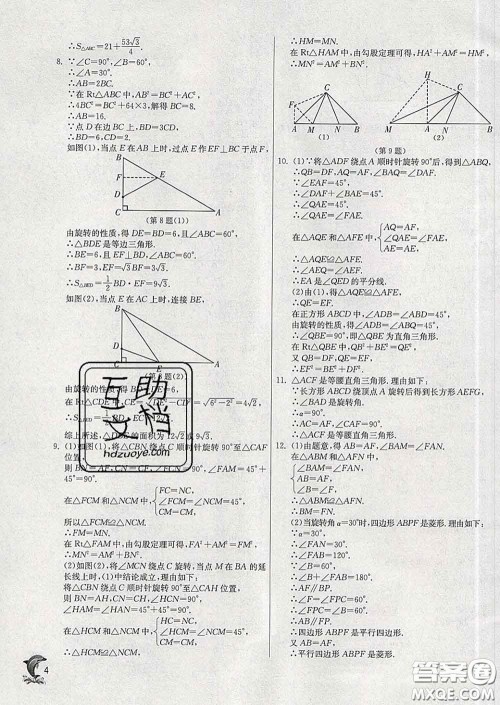 ∴S△ABC=21+53√3/4.
8. ∵∠C=90°,∠B=60°,
∴∠A=30°.
∴AB=2BC.
∵在Rt△ABC中,AB²=BC²+AC²,
∴4BC²=BC²+64×3,解得BC=8.
∴AB=16.
∵点D在边BC上,BD=3CD,
∴BD=6,CD=2.
如图(1),当点E在AB上时,过点E作EF⊥BC于点F,
B
F E
D
C A
(第8题(1))
由旋转的性质,得DE=BD=6,且∠ABC=60°,
∴△BDE是等边三角形.
∴BE=6,且EF⊥BD,∠ABC=60°,
∴BF=3,EF=√3BF=3√3.
∴S△BED=1/2 BD·EF=9√3.
如图(2),当点E在AC上时,连接BE,
B
D
C E A
题(2))
由旋转的性质,得
综上所述,△DBE的面积为12√2或9√3.
9. (1)如图(1),将△CBN绕点C顺时针旋转90°至△CAF
位置,
则BN=AF,CN=CF,∠FCM=∠FAM=45°+45°
=90°.
在△FCM和△NCM中,{FC=NC,
∠FCM=∠NCM=45°,
CM=CM,
所以△FCM≌△NCM.
∴FM=MN.
在Rt△FAM中,由勾股定理可得,FA²+AM²=FM².
∴MN²=AM²+BN².
(2)如图(2),将△MCN绕点C旋转,当点M在BA的延
长线上时,(1)中结论成立,理由如下:
将△CBN绕点C顺时针旋转90°至△CAH位置,
则BN=AH,CN=CH,∠HCN=90°,
∠HAM=∠HAN=45°+45°=90°.
在△HCM和△NCM中,{HC=NC,
∠HCM=∠NCM=45°,
CM=CM,
∴△HCM≌△NCM.
4
∴HM=MN.
在Rt△HAM中,由勾股定理可得,HA²+AM²=HM²,
∴MN²=AM²+BN².
C
F
A M N B
(1)
H
C
M A N B
(2)
(第9题)
10. (1)∵将△ADF绕点A顺时针旋转90°后,得到△ABQ,
∴QB=DF,AQ=AF,∠BAQ=∠DAF.
∵∠EAF=45°,
∴∠DAF+∠BAE=45°.
∴∠QAE=45°.
∴∠QAE=∠FAE.
在△AQE和△AFE中,{AQ=AF,
∠QAE=∠FAE,
AE=AE,
∴△AQE≌△AFE.
∴∠AEQ=∠AEF.
∴EA是∠QED的平分线.
(2)由(1),得△AQE≌△AFE,
∴QE=EF.
在正方形ABCD中,∠ADB=∠ABD=45°.
由旋转的性质,得∠ABQ=∠ADB=45°,
∴∠QBE=90°,即△QBE为直角三角形.
在Rt△QBE中,QB²+BE²=QE².
又∵QB=DF,
∴EF²=BE²+DF².
11. △ACF是等腰直角三角形.理由如下:
∵长方形ABCD绕点A旋转后得到长方形AEFG,
∴∠BAD是旋转角.
∴∠CAF=90°,AC=AF.
∴△ACF是等腰直角三角形.
12. (1)由题意,得AB=AF,∠BAM=∠FAN.
在△ABM和△AFN中,
{∠BAM=∠FAN,
AB=AF,
∠B=∠F,
∴△ABM≌△AFN.
∴AM=AN.
(2)当旋转角α=30°时,四边形ABPF是菱形.理由如下:
∵α=30°,
∴∠FAN=30°.
∴∠FAB=120°.
∵∠B=60°,
∴∠FAB+∠B=180°.
∴AF∥BP.
∴∠F=∠FPC=60°.
∴∠FPC=∠B=60°.
∴AB∥FP.
∴四边形ABPF是平行四边形.
∵AB=AF,
∴平行四边形ABPF是菱形.
互助文档
hdzuoye.com
答案圈
MXQE.COM